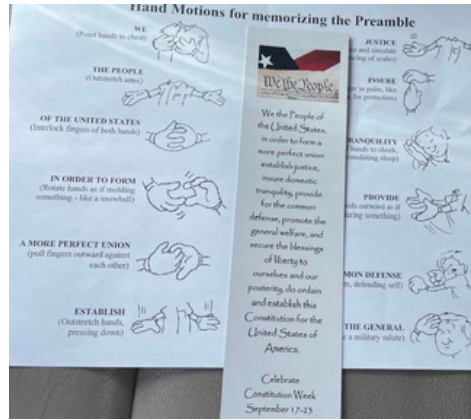 Hand Motions for memorizing the Preamble
WE
(Point hands to chest)
THE PEOPLE
(Outstretch arms)
OF THE UNITED STATES
(Interlock fingers of both hands)
IN ORDER TO FORM
(Rotate hands as if molding
something - like a snowball)
A MORE PERFECT UNION
(pull fingers outward against
each other)
ESTABLISH
(Outstretch hands,
pressing down)
We the People
We the People of
the United States,
in order to form a
more perfect union
establish justice,
insure domestic
tranquility, provide
for the common
defense, promote the
general welfare, and
secure the blessings
of liberty to
ourselves and our
posterity, do ordain
and establish this
Constitution for the
United States of
America.
Celebrate
Constitution Week
September 17-23
JUSTICE
and simulate
cing of scales)
INSURE
er in palm, like
for protection)
RANQUILITY
hands to cheek,
simulating sleep)
PROVIDE
nds outward as if
ering something)
MON DEFENSE
ts, defending self)
THE GENERAL
e a military salute)